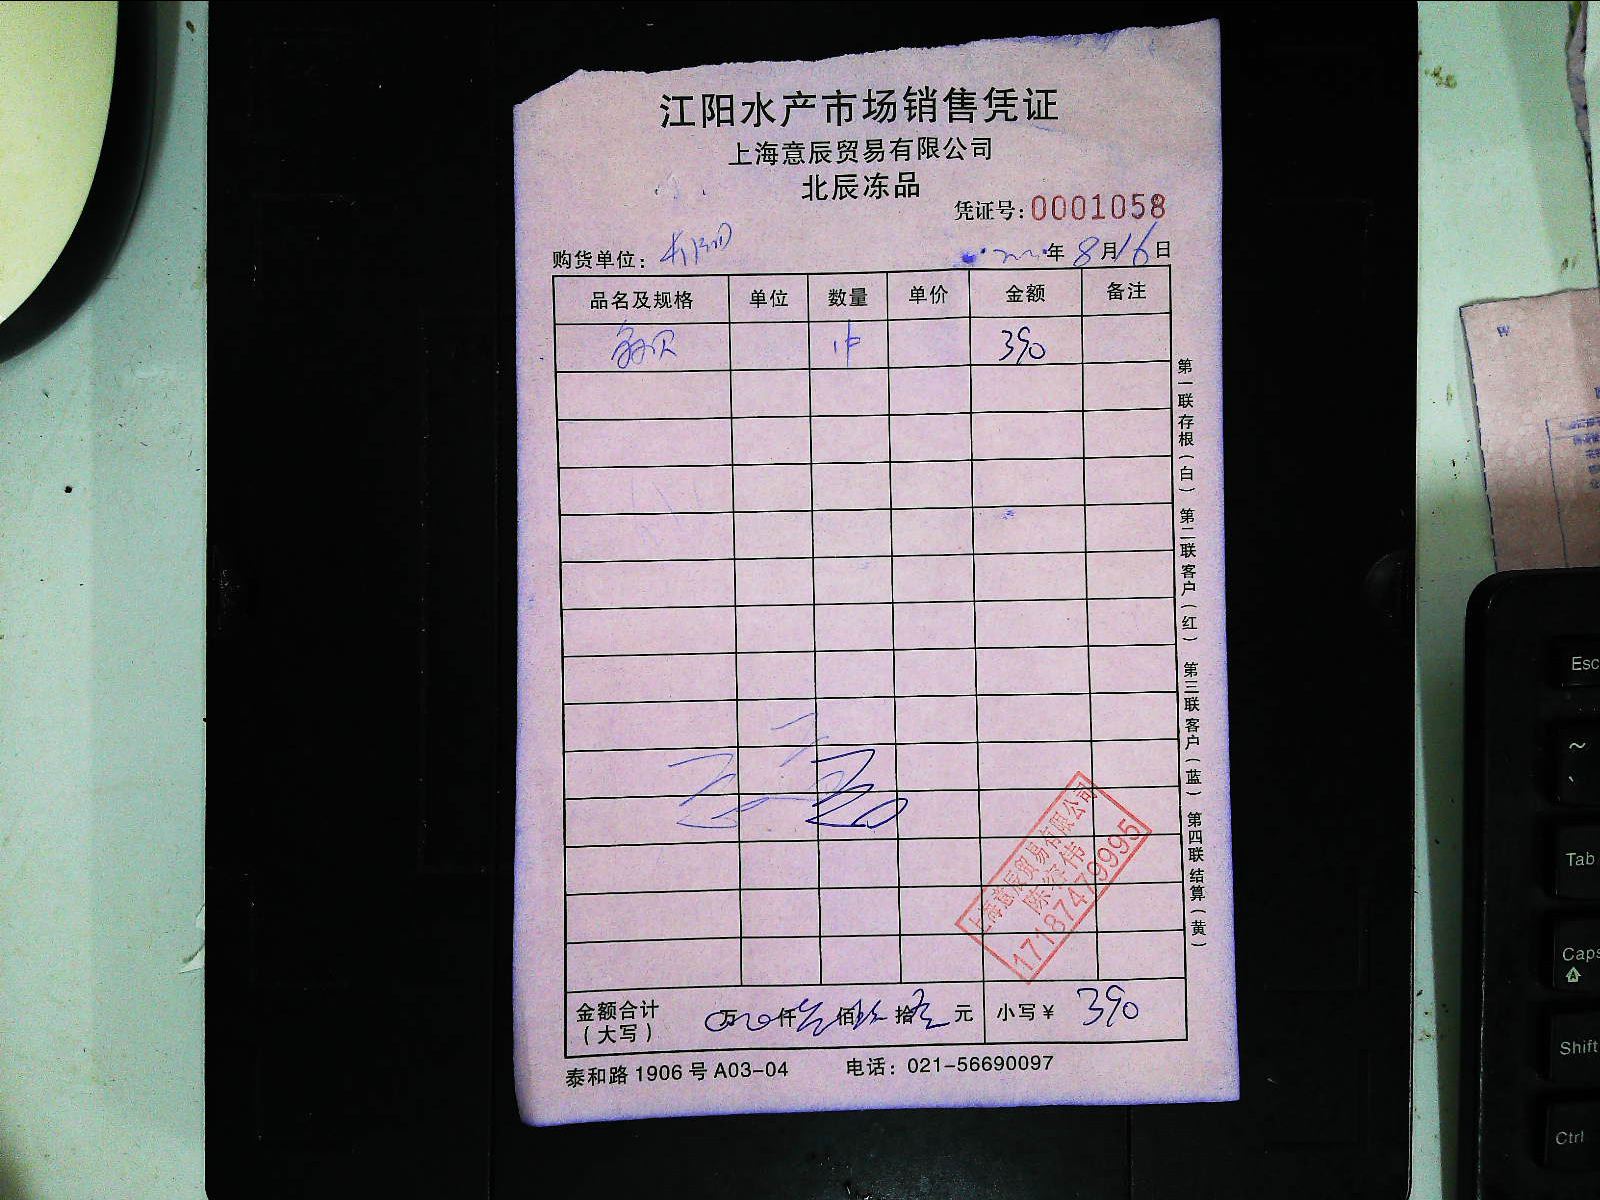 江阳水产市场销售凭证
上海意辰贸易有限公司
北辰冻品
凭证号:0001058
购货单位:
年8月16日
品名及规格 单位 数量 单价 金额 备注
贝 1件 390
第一联存根(白) 第二联客户(红) 第三联客户(蓝) 第四联结算(黄)
上海意辰贸易有限公司
17187479995
金额合计 万 仟 佰 拾 元 小写¥ 390
(大写)
泰和路1906号A03-04 电话:021-56690097
Esc
~
Tab
Caps
Shift
Ctrl